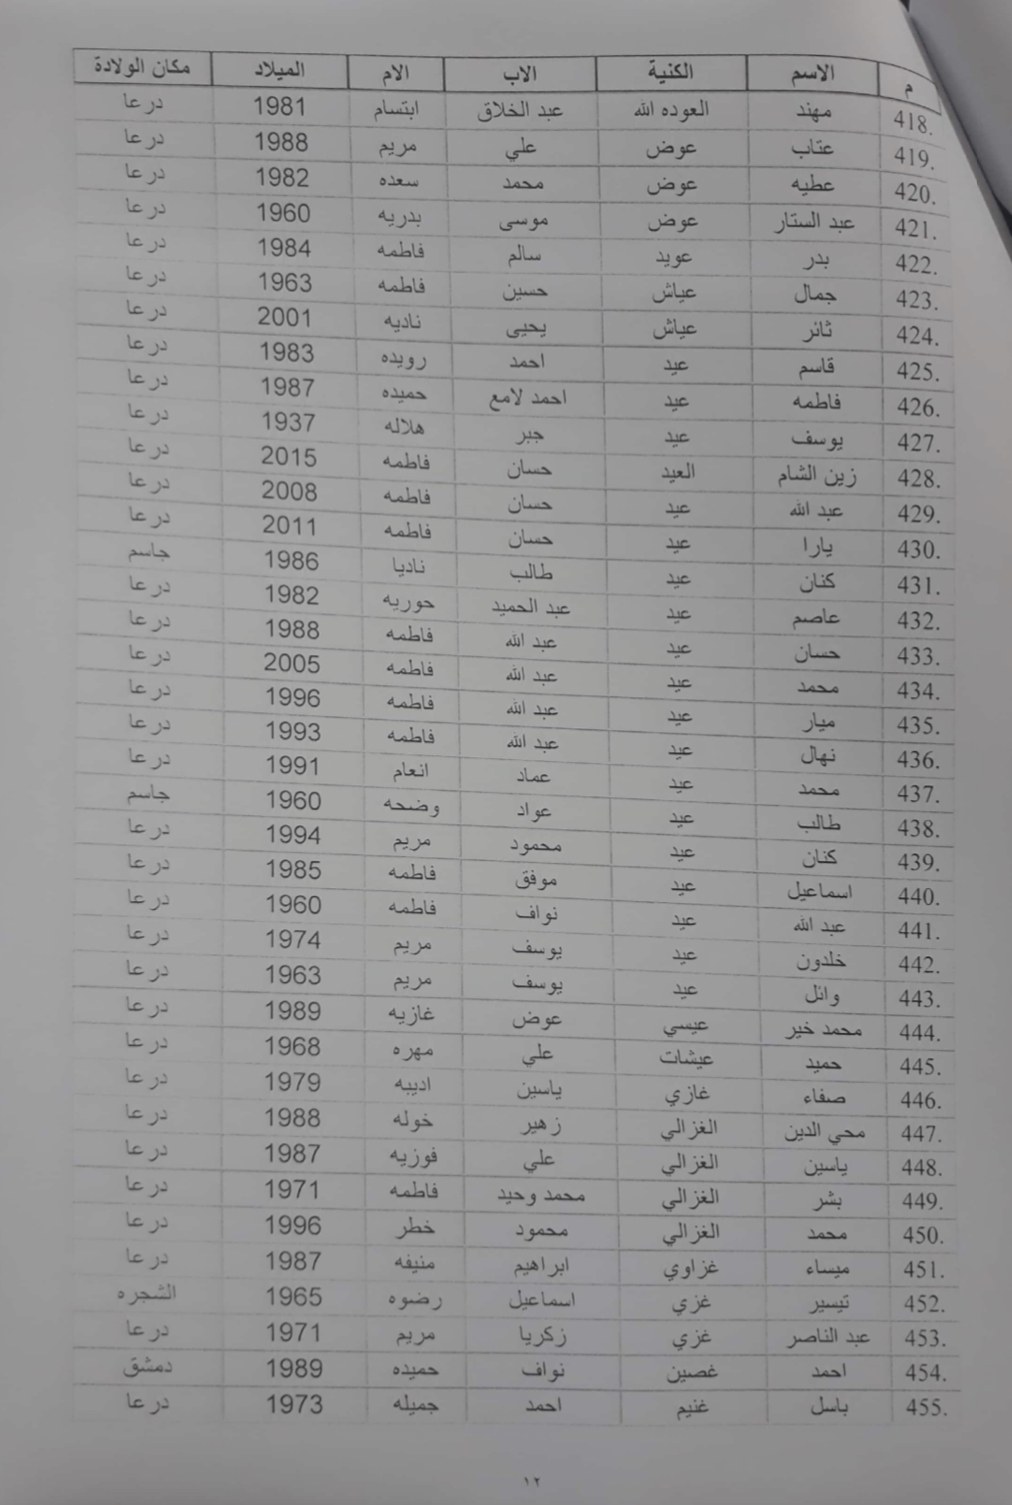 م الاسم الكنية الاب الام الميلاد مكان الولادة
418. مهند العوده الله عبد الخلاق ابتسام 1981 درعا
419. عتاب عوض علي مريم 1988 درعا
420. عطيه عوض محمد سعده 1982 درعا
421. عبد الستار عوض موسى بدريه 1960 درعا
422. بدر عويد سالم فاطمه 1984 درعا
423. جمال عياش حسين فاطمه 1963 درعا
424. ثائر عياش يحيى ناديه 2001 درعا
425. قاسم عيد احمد رويده 1983 درعا
426. فاطمه عيد احمد لامع حميده 1987 درعا
427. يوسف عيد جبر هلاله 1937 درعا
428. زين الشام العيد حسان فاطمه 2015 درعا
429. عبد الله عيد حسان فاطمه 2008 درعا
430. يارا عيد حسان فاطمه 2011 درعا
431. كنان عيد طالب ناديا 1986 جاسم
432. عاصم عيد عبد الحميد حوريه 1982 درعا
433. حسان عيد عبد الله فاطمه 1988 درعا
434. محمد عيد عبد الله فاطمه 2005 درعا
435. ميار عيد عبد الله فاطمه 1996 درعا
436. نهال عيد عبد الله فاطمه 1993 درعا
437. محمد عيد عماد انعام 1991 درعا
438. طالب عيد عواد وضحه 1960 جاسم
439. كنان عيد محمود مريم 1994 درعا
440. اسماعيل عيد موفق فاطمه 1985 درعا
441. عبد الله عيد نواف فاطمه 1960 درعا
442. خلدون عيد يوسف مريم 1974 درعا
443. وائل عيد يوسف مريم 1963 درعا
444. محمد خير عيسي عوض غازيه 1989 درعا
445. حميد عيشات علي مهره 1968 درعا
446. صفاء غازي ياسين اديبه 1979 درعا
447. محي الدين الغزالي زهير خوله 1988 درعا
448. ياسين الغزالي علي فوزيه 1987 درعا
449. بشر الغزالي محمد وحيد فاطمه 1971 درعا
450. محمد الغزالي محمود خطر 1996 درعا
451. ميساء غزاوي ابراهيم منيفه 1987 درعا
452. تيسير غزي اسماعيل رضوه 1965 الشجره
453. عبد الناصر غزي زكريا مريم 1971 درعا
454. احمد غصين نواف حميده 1989 دمشق
455. باسل غنيم احمد جميله 1973 درعا
١٢